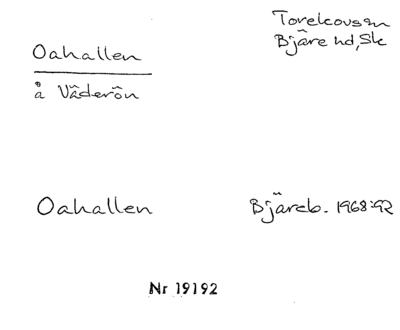 Oahallen
å Väderön
Torekovs sn
Bjäre hd, Sk
Oahallen
Bjäreb. 1968:92
Nr 19192